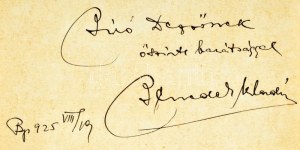 Bíró Dezsőnek
őszinte barátsággal
Benedek Marcell
Bp. 925 VIII/19